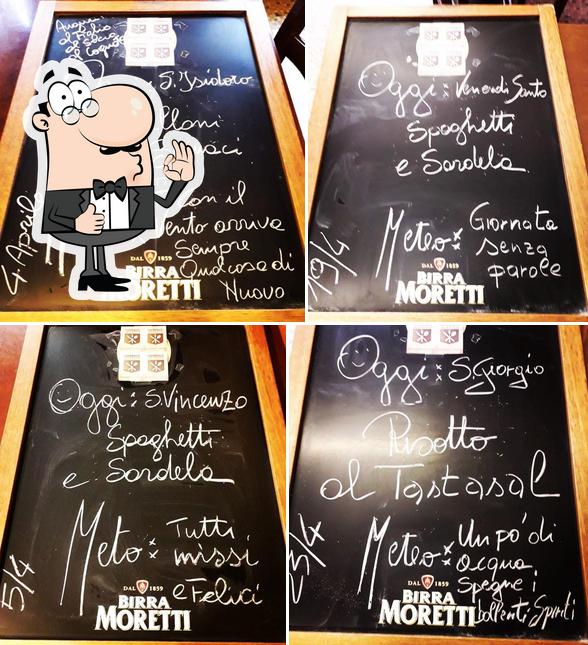 Auguri
S. Isidoro
4 Aprile
con il
ento arriva
Sempre
Qualcosa di
Nuovo
DAL 1859
BIRRA
MORETTI
Oggi: Venerdi Santo
Spaghetti
e Sardela
19/4
Meteo: Giornata
senza
parole
DAL 1859
BIRRA
MORETTI
Oggi: S. Vincenzo
Spaghetti
e Sardela
5/4
Meto: Tutti
missi
e Felici
DAL 1859
BIRRA
MORETTI
Oggi: S. Giorgio
Risotto
al Tastasal
23/4
Meteo: Un po' di
acqua
Spegne i
bollenti Spiriti
DAL 1859
BIRRA
MORETTI